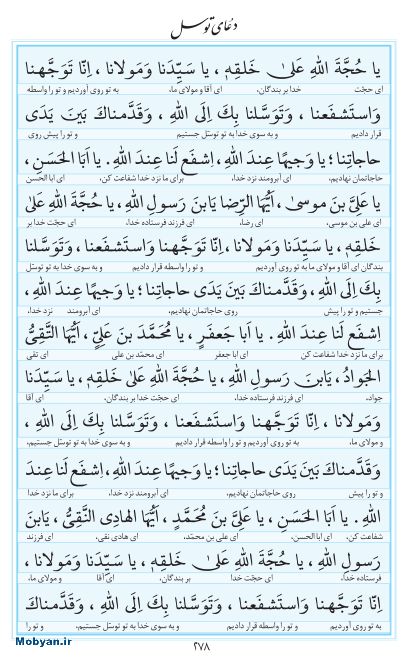 دعای توسل
یا حُجَّةَ اللهِ عَلیٰ خَلقِهٖ، یا سَیِّدَنا وَمَولانا، اِنّا تَوَجَّهنا
ای حجّت خدا بر بندگان، ای آقا و مولای ما، به تو روی آوردیم و تو را واسطه
وَاستَشفَعنا، وَتَوَسَّلنا بِكَ اِلَی اللهِ، وَقَدَّمناكَ بَینَ یَدَی
قرار دادیم و به سوی خدا به تو توسّل جستیم و تو را پیش روی
حاجاتِنا؛ یا وَجیهًا عِندَ اللهِ، اِشفَع لَنا عِندَ اللهِ. یا اَبَا الحَسَنِ،
حاجاتمان نهادیم، ای آبرومند نزد خدا، برای ما نزد خدا شفاعت کن، ای ابا الحسن
یا عَلِیَّ بنَ موسیٰ، اَیُّهَا الرِّضا یَابنَ رَسولِ اللهِ، یا حُجَّةَ اللهِ عَلیٰ
ای علی بن موسی، ای رضا، ای فرزند فرستاده خدا، ای حجّت خدا بر
خَلقِهٖ، یا سَیِّدَنا وَمَولانا، اِنّا تَوَجَّهنا وَاستَشفَعنا، وَتَوَسَّلنا
بندگان ای آقا و مولای ما به تو روی آوردیم و تو را واسطه قرار دادیم و به سوی خدا به تو توسّل
بِكَ اِلَی اللهِ، وَقَدَّمناكَ بَینَ یَدَی حاجاتِنا؛ یا وَجیهًا عِندَ اللهِ،
جستیم و تو را پیش روی حاجاتمان نهادیم، ای آبرومند نزد خدا،
اِشفَع لَنا عِندَ اللهِ. یا اَبا جَعفَرٍ، یا مُحَمَّدَ بنَ عَلِیٍّ، اَیُّهَا التَّقِیُّ
برای ما نزد خدا شفاعت کن ای ابا جعفر ای محمّد بن علی ای تقی
الجَوادُ، یَابنَ رَسولِ اللهِ، یا حُجَّةَ اللهِ عَلیٰ خَلقِهٖ، یا سَیِّدَنا
جواد، ای فرزند فرستاده خدا، ای حجّت خدا بر بندگان، ای آقا
وَمَولانا، اِنّا تَوَجَّهنا وَاستَشفَعنا، وَتَوَسَّلنا بِكَ اِلَی اللهِ،
و مولای ما، به تو روی آوردیم و تو را واسطه قرار دادیم و به سوی خدا به تو توسّل جستیم،
وَقَدَّمناكَ بَینَ یَدَی حاجاتِنا؛ یا وَجیهًا عِندَ اللهِ، اِشفَع لَنا عِندَ
و تو را پیش روی حاجاتمان نهادیم، ای آبرومند نزد خدا، برای ما نزد خدا
اللهِ. یا اَبَا الحَسَنِ، یا عَلِیَّ بنَ مُحَمَّدٍ، اَیُّهَا الهادِی النَّقِیُّ، یَابنَ
شفاعت کن، ای ابا الحسن، ای علی بن محمّد، ای هادی نقی، ای فرزند
رَسولِ اللهِ، یا حُجَّةَ اللهِ عَلیٰ خَلقِهٖ، یا سَیِّدَنا وَمَولانا،
فرستاده خدا، ای حجّت خدا بر بندگان، ای آقا و مولای ما،
اِنّا تَوَجَّهنا وَاستَشفَعنا، وَتَوَسَّلنا بِكَ اِلَی اللهِ، وَقَدَّمناكَ
به تو روی آوردیم و تو را واسطه قرار دادیم و به سوی خدا به تو توسّل جستیم، و تو را
۲۷۸
Mobyan.ir